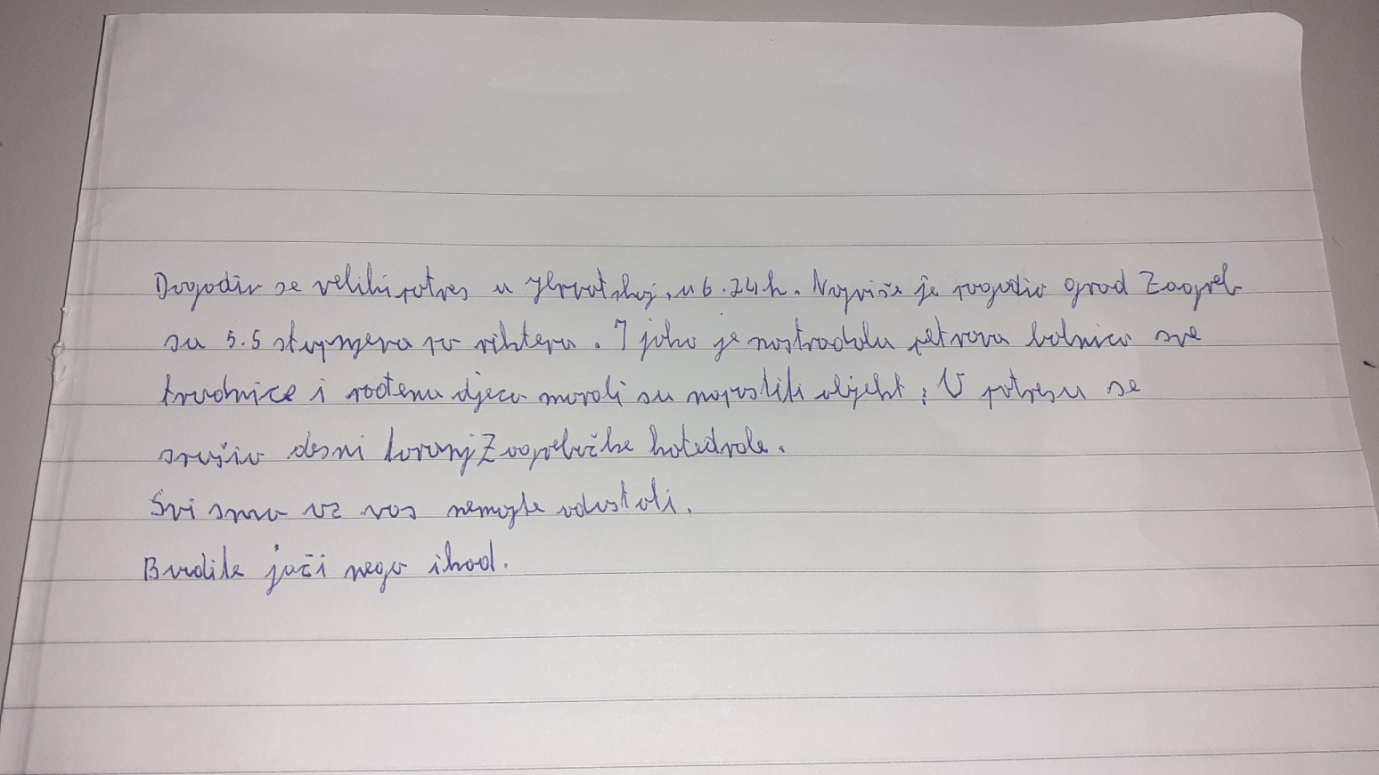 Dogodio se veliki potres u Hrvatskoj, u 6.24h. Najviše je pogodio grad Zagreb
sa 5.5 stupnjeva po rihteru. I jako je nastradala petrova bolnica sve
trudnice i rođenu djecu morali su napustiti objekt, U potresu se
srušio desni toranj Zagrebačke katedrale.
Svi smo uz vas nemojte odustati.
Budite jači nego ikad.